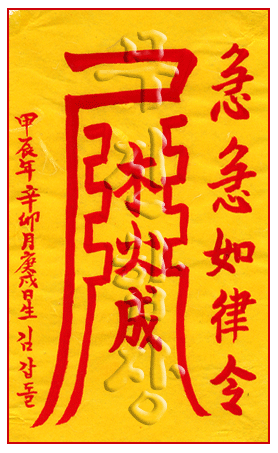 急急如律令
木火成
甲辰年 辛卯月 庚戌日生 김갑돌